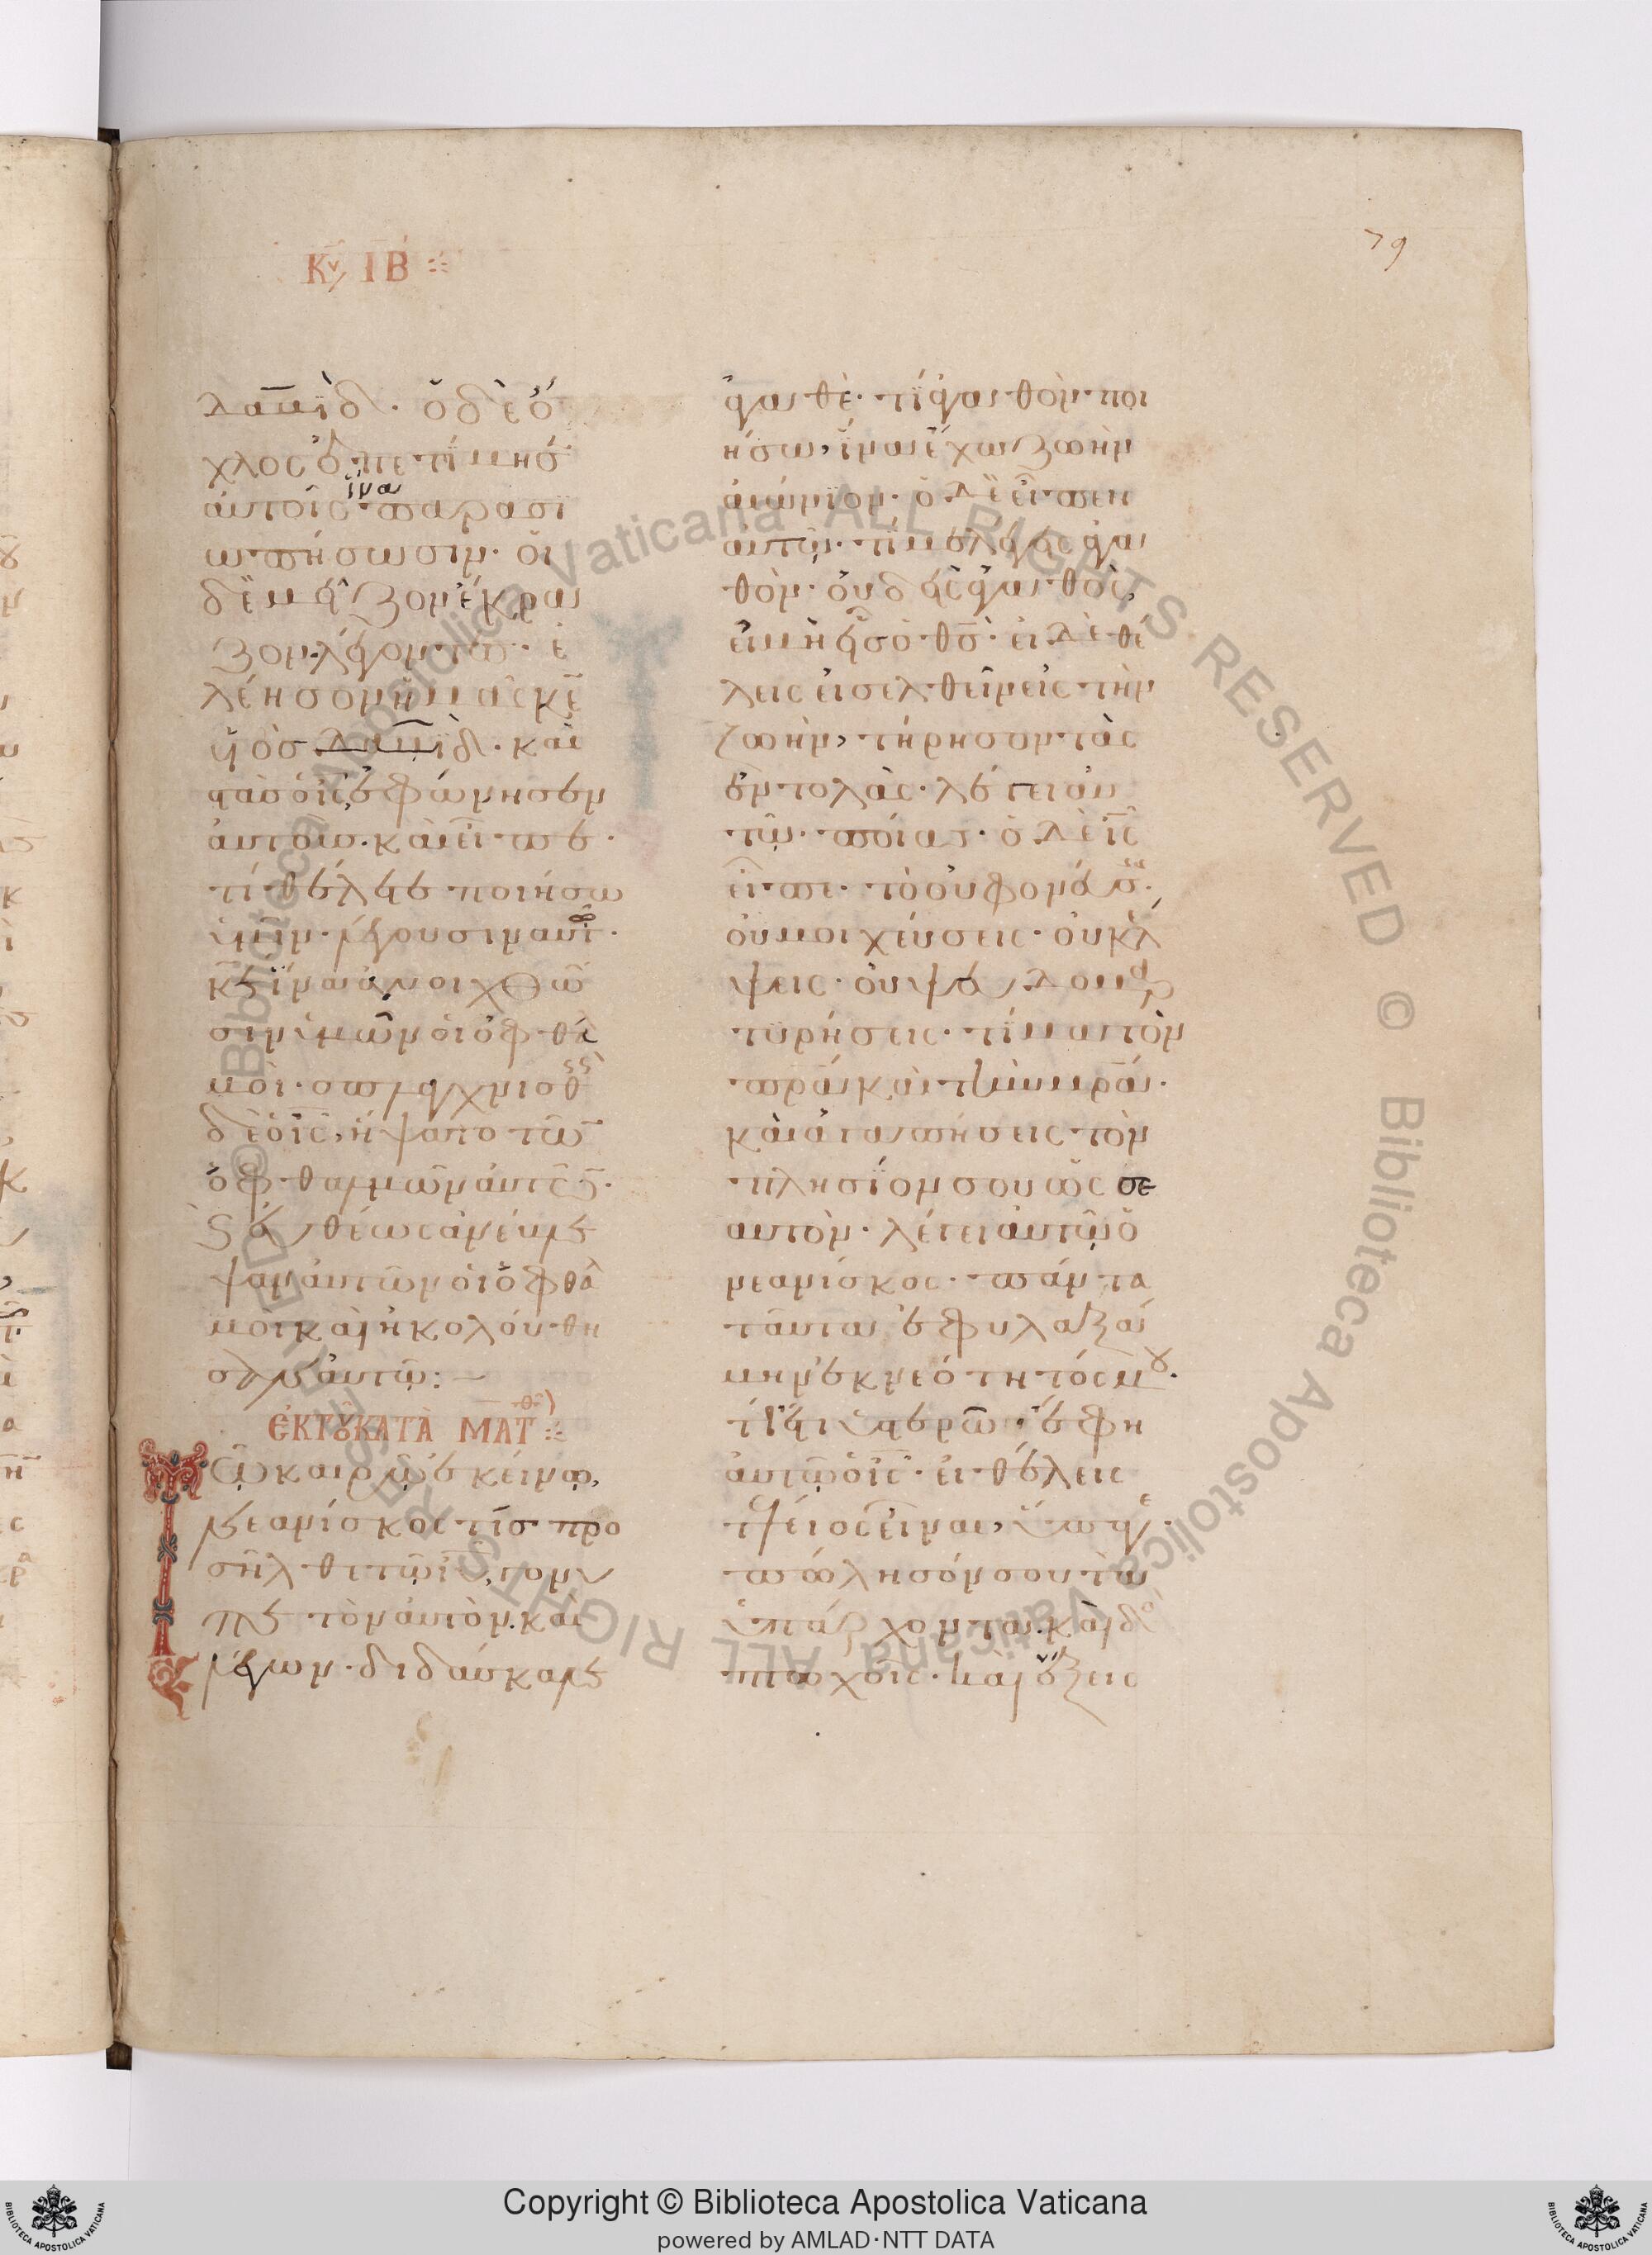 Κυ ΙΒ
79
δα̅υῒδ· ὁ δὲ ὄ
χλος ἐπετίμησ
αὐτοῖς ἵνα παρασι
ωπήσωσιν· οἱ
δὲ μεῖζον ἔκρα
ζον λέγοντ· ἐ
λέησον ἡμᾶς κ̅ε̅
υἱὸσ δα̅υῒδ· καὶ
στὰσ ὁ ι̅ς̅ ἐφώνησεν
αὐτοὺσ· καὶ εἶπε·
τί θέλετε ποιήσω
ὑμῖν· λέγουσιν αὐτ·
κ̅ε̅ ἵνα ἀνοιχθῶ
σιν ἡμῶν οἱ ὀφθαλ
μοὶ· σπλαγχνισθεὶς
δὲ ὁ ι̅ς̅, ἥψατο τῶ
ὀφθαλμῶν αὐτῶν·
καὶ εὐθέως ἀνέβλε
ψαν αὐτῶν οἱ ὀφθαλ
μοὶ καὶ ἠκολούθη
σαν αὐτῷ:—
ἐκ τοῦ κατὰ Ματθ
Τῷ καιρῷ ἐκείνῳ,
νεανίσκος τὶσ προ
σῆλθε τῷ ι̅υ̅, γονυ
πε τὸν αὐτὸν· καὶ
λέγων· διδάσκαλε
ἀγαθὲ· τί ἀγαθὸν ποι
ήσω, ἵνα ἔχω ζωὴν
αἰώνιον· ὁ δὲ εἶπεν
αὐτῷ· τί με λέγεις ἀγα
θὸν· οὐδεὶς ἀγαθὸς,
εἰ μὴ εἷσ ὁ θ̅σ̅· εἰ δὲ θέ
λεις εἰσελθεῖν εἰς τὴν
ζωὴν, τήρησον τὰς
ἐντολὰς· λέγει αὐ
τῷ· ποίας· ὁ δὲ ι̅ς̅
εἶπε· τὸ οὐ φονεύσεις·
οὐ μοιχεύσεις· οὐ κλέ
ψεις· οὐ ψευδομαρ
τυρήσεις· τίμα τὸν
πρ̅α̅ καὶ τὴν μρ̅α̅·
καὶ ἀγαπήσεις τὸν
πλησίον σου ὡς σε
αυτὸν· λέγει αὐτῷ ὁ
νεανίσκος· πάντα
ταῦτα ἐφυλαξά
μην ἐκ νεότητός μου·
τί ἔτι ὑστερῶ· ἔφη
αὐτῷ ὁ ι̅ς̅· εἰ θέλεις
τέλειος εἶναι, ὕπαγε·
πώλησόν σου τὰ
ὑπάρχοντα· καὶ δὸ
πτωχοῖς· καὶ ἕξεις
© Biblioteca Apostolica Vaticana ALL RIGHTS RESERVED © Biblioteca Apostolica Vaticana ALL RIGHTS RESERVED
Copyright © Biblioteca Apostolica Vaticana
powered by AMLAD·NTT DATA
BIBLIOTECA APOSTOLICA VATICANA
BIBLIOTECA APOSTOLICA VATICANA